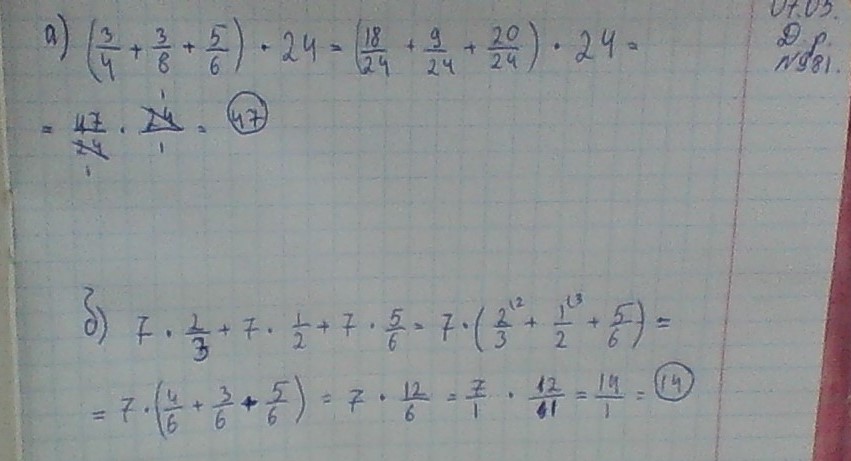 07.05.
Д.р.
№981.
а) (3/4 + 3/8 + 5/6) · 24 = (18/24 + 9/24 + 20/24) · 24 =
= 47/24 · 24/1 = 47
б) 7 · 2/3 + 7 · 1/2 + 7 · 5/6 = 7 · (2/3 + 1/2 + 5/6) =
= 7 · (4/6 + 3/6 + 5/6) = 7 · 12/6 = 7/1 · 12/1 = 14/1 = 14